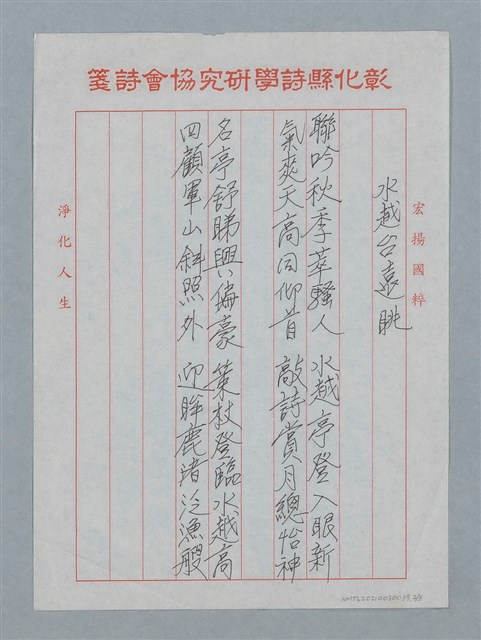 彰化縣詩學研究協會詩箋
宏揚國粹
水越台遠眺
聯吟秋季萃騷人 水越亭登入眼新
氣爽天高同仰首 敲詩賞月總怡神
名亭舒睇興徧豪 策杖登臨水越高
四顧軍山斜照外 迎眸鹿渚泛漁艘
淨化人生